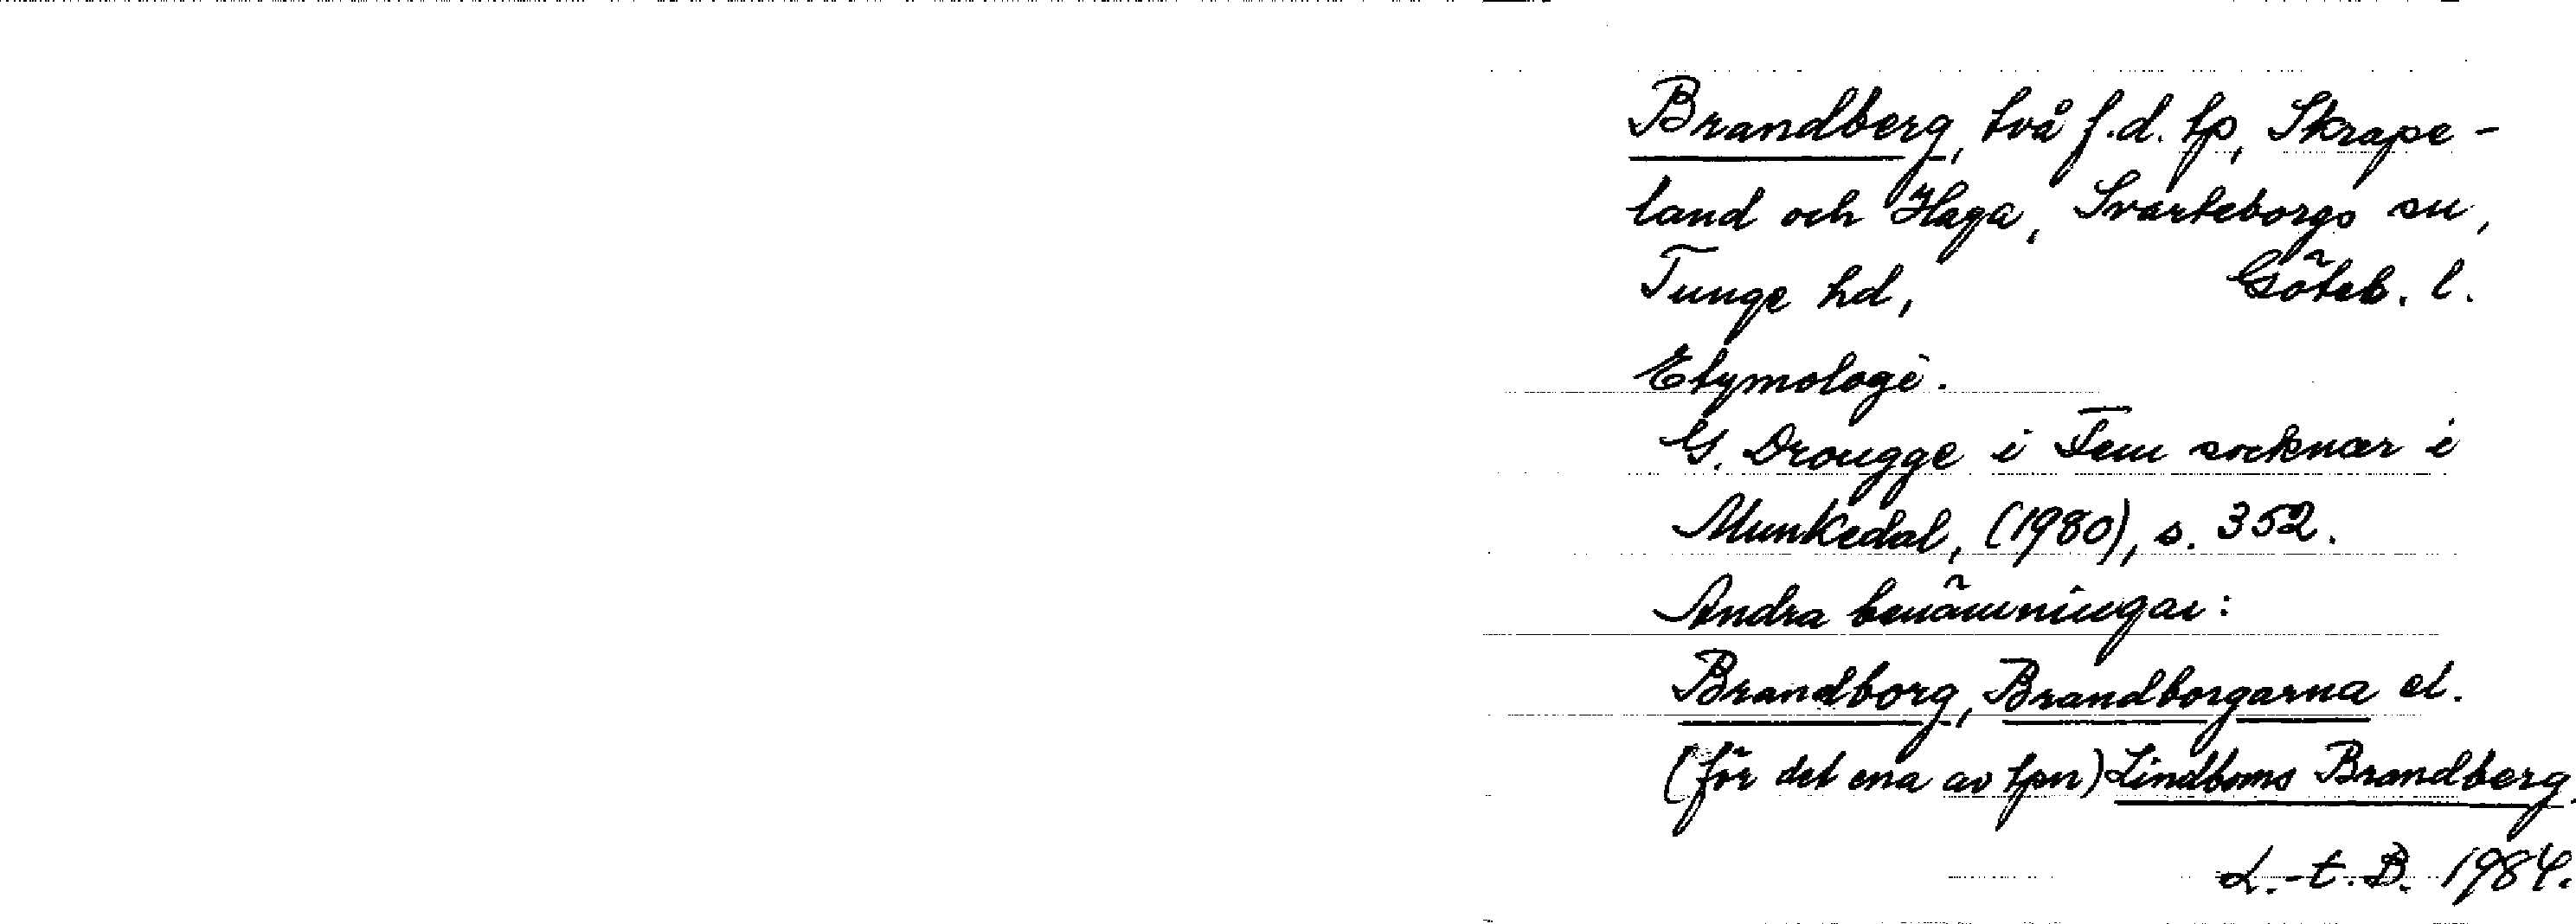 Brandberg, två f.d. tp, Skrape-
land och Haga, Svarteborgs sn,
Tunge hd, Göteb. l.
Etymologi.
G. Drougge i Fem socknar i
Munkedal, (1980), s. 352.
Andra benämningar:
Brandborg, Brandborgarna el.
(för det ena av tpn) Lindboms Brandberg.
L.-t. B. 1984.